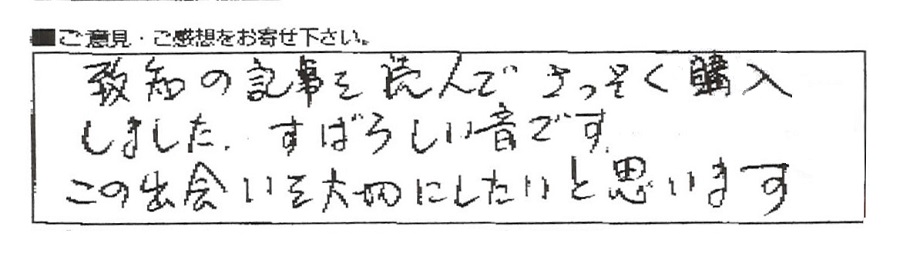 ■ご意見・ご感想をお寄せ下さい。
致知の記事を読んでさっそく購入
しました. すばらしい音です.
この出会いを大切にしたいと思います